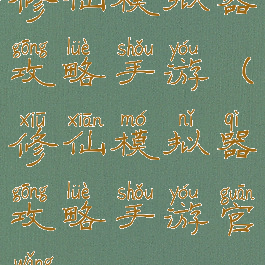 修仙模拟器
gōng lüè shǒu yóu
攻略手游（
xiū xiān mó nǐ qì
修仙模拟器
gōng lüè shǒu yóu guān
攻略手游官
wǎng